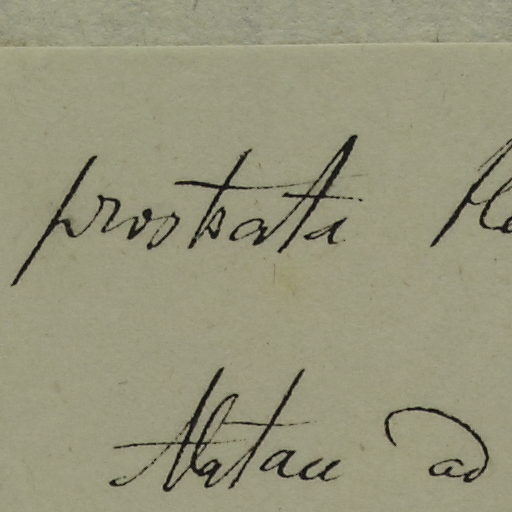 prostrata
Alatau ad